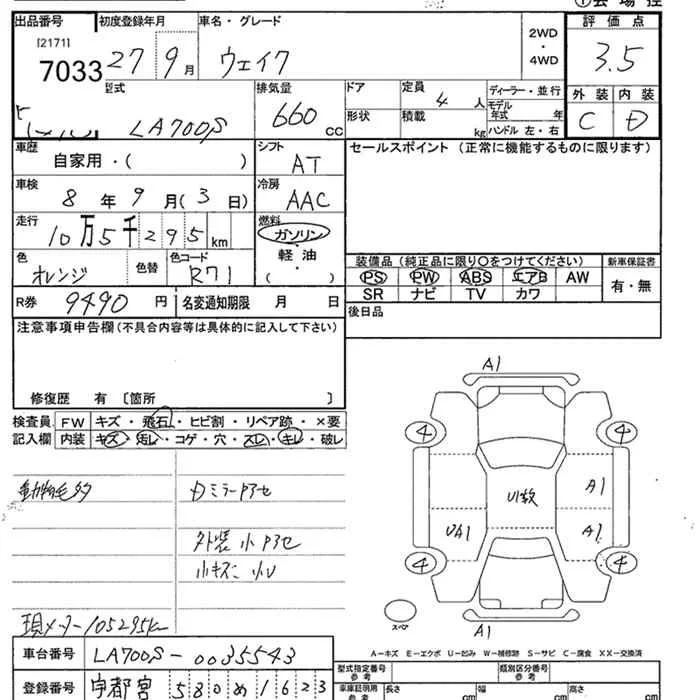 出品番号 初度登録年月 車名・グレード 評価点
[2171]
7033 27 9月 ウェイク 2WD・4WD 3.5
型式 排気量 ドア 定員 4人 ディーラー・並行 外装 内装
LA700S 660cc 形状 積載 kg モデル年式 年 ハンドル 左・右 C D
車歴 自家用・( ) シフト AT セールスポイント (正常に機能するものに限ります)
車検 8年9月(3日) 冷房 AAC
走行 10万5千295km 燃料 ガソリン・軽油・( )
色 オレンジ 色替 色コード R71
装備品 (純正品に限り○をつけてください) 新車保証書
PS PW ABS エアB AW 有・無
SR ナビ TV カワ
R券 9490円 名変通知期限 月 日 後日品
注意事項申告欄(不具合内容等は具体的に記入して下さい)
修復歴 有 〔箇所 〕
検査員 FW キズ・飛石・ヒビ割・リペア跡・×要
記入欄 内装 キズ・汚レ・コゲ・穴・スレ・キレ・破レ
動物毛多 DミラーPアセ
外装小Pアセ
小キズ小U
現メーター105295km
A1
4 4
U1数 A1
UA1 A1
4 4
スペア A1
A-キズ E-エクボ U-凹み W-補修跡 S-サビ C-腐食 XX-交換済
車台番号 LA700S-0035543
型式指定番号 参考 類別区分番号 参考
登録番号 宇都宮 580 め 1623
車庫証明用 参考 長さ cm 幅 cm 高さ cm